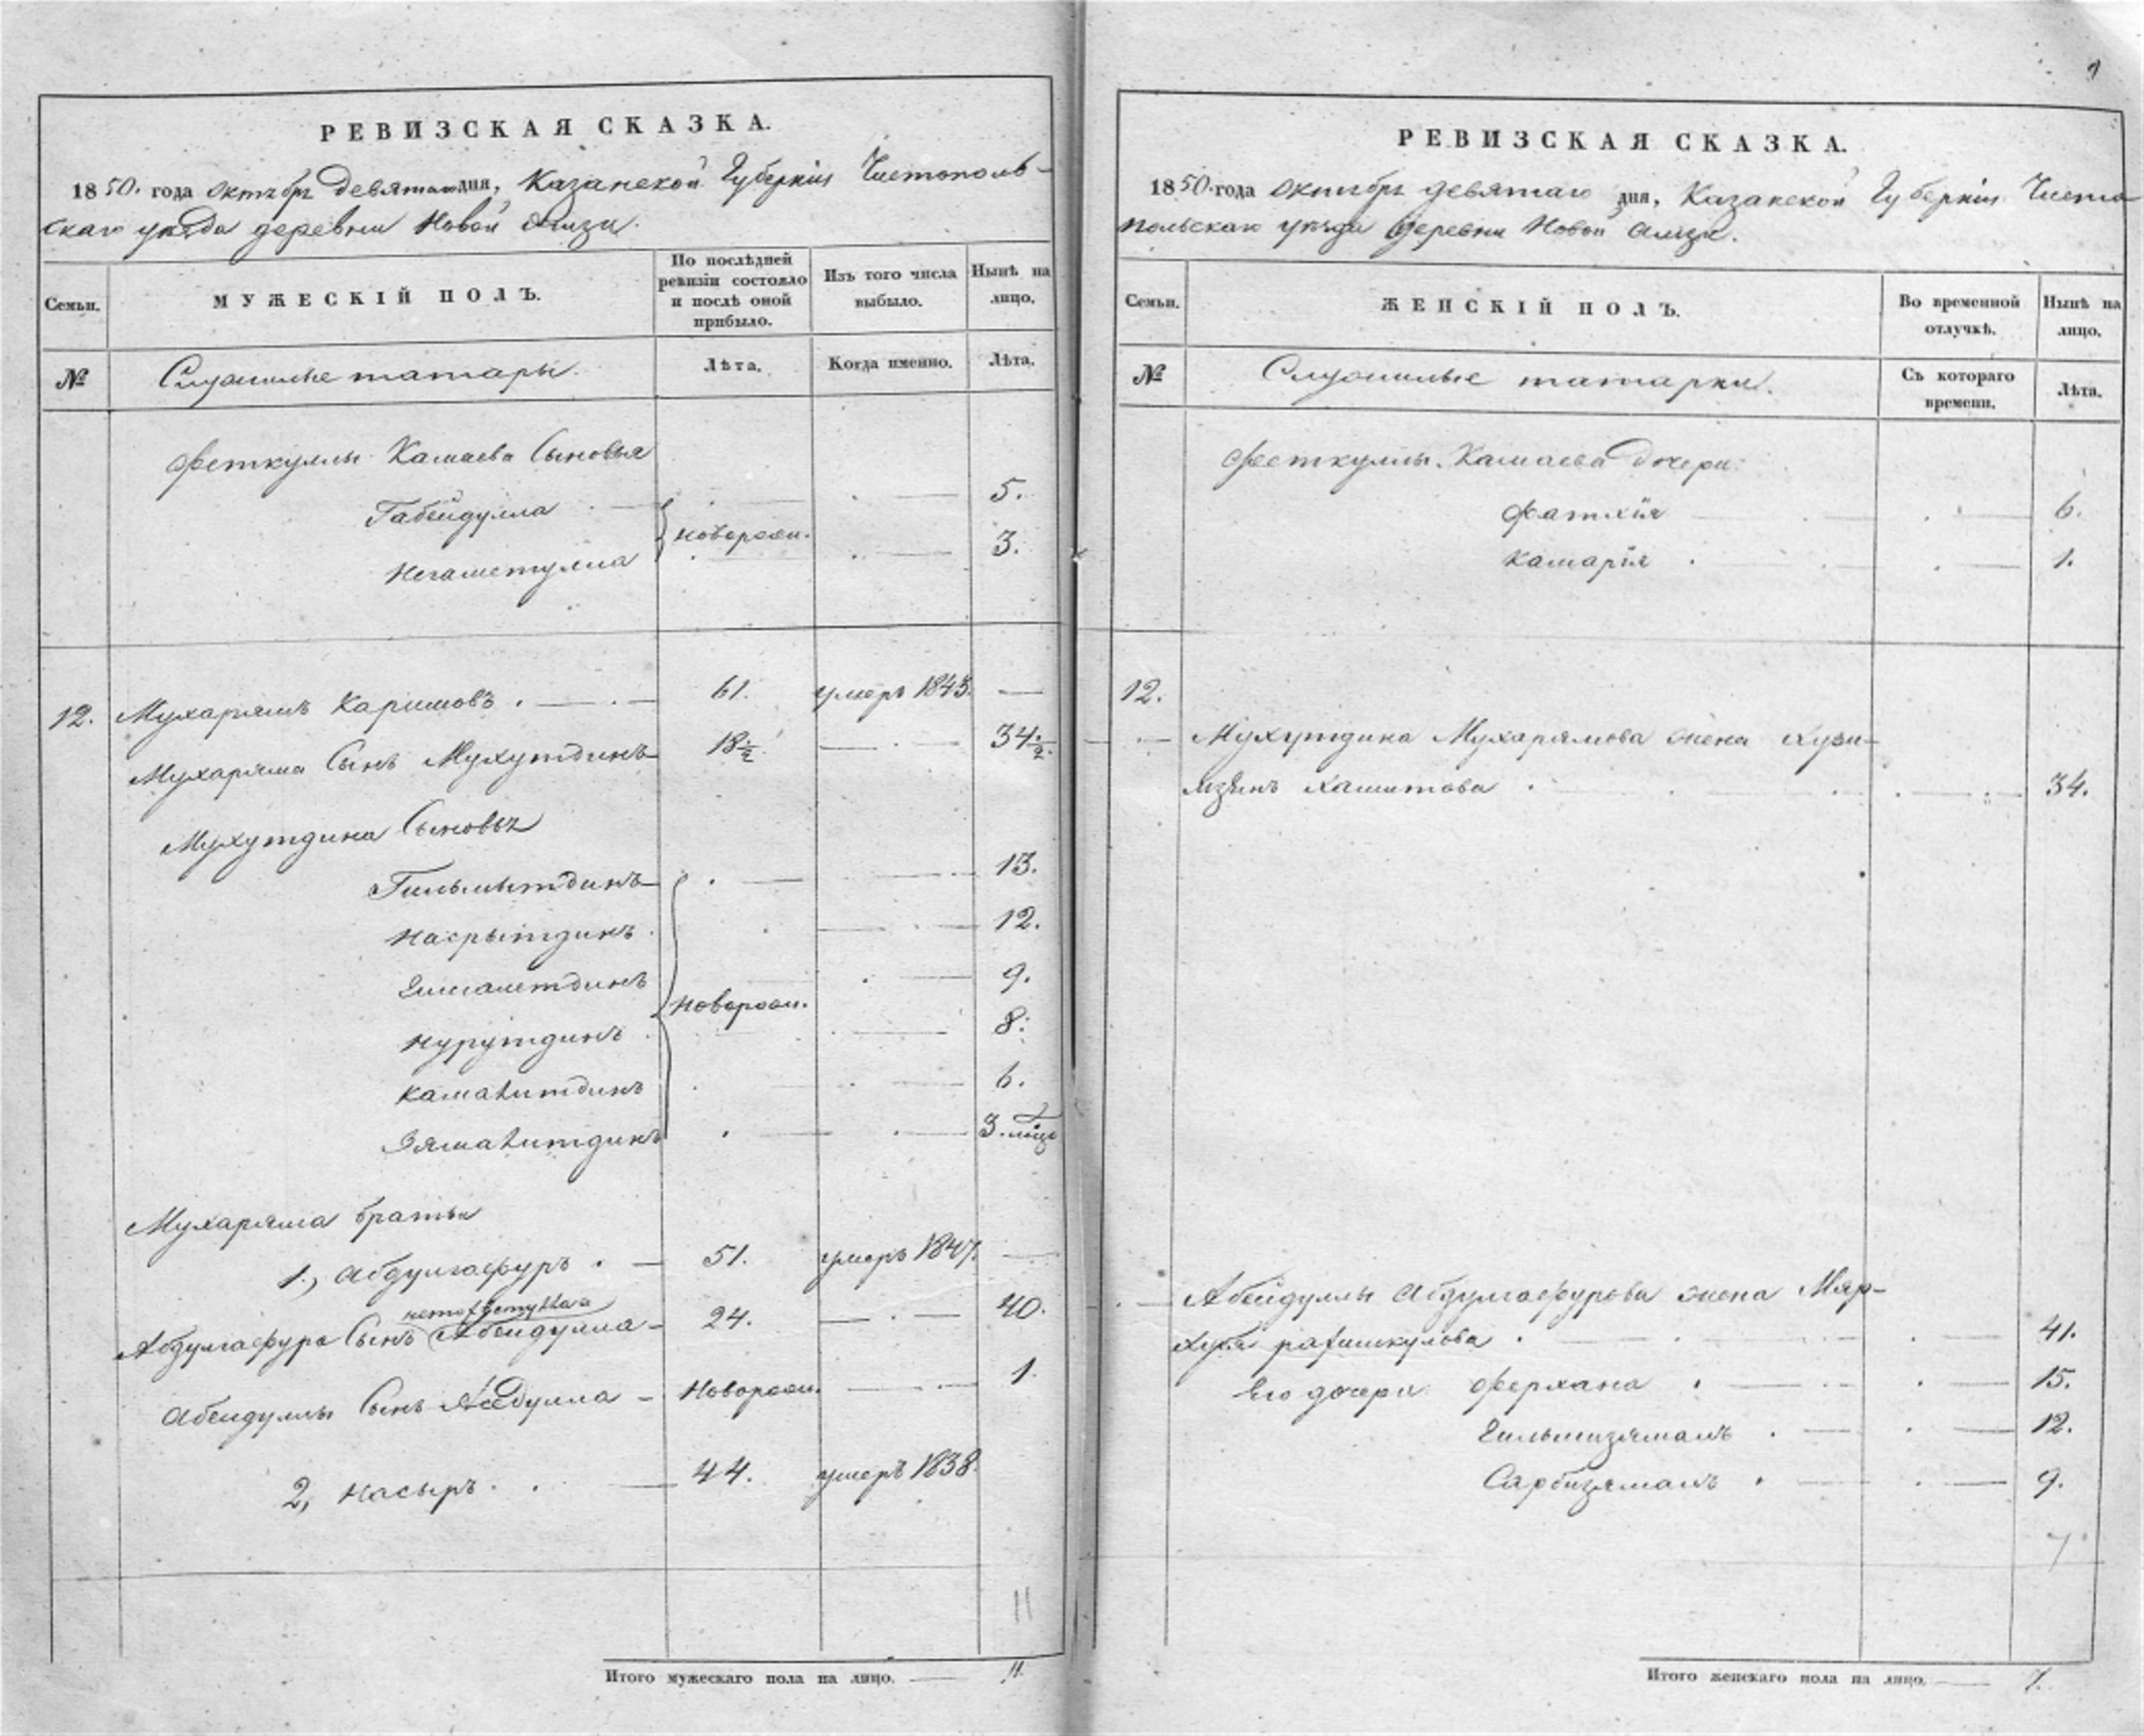 РЕВИЗСКАЯ СКАЗКА.
1850. года октябр девятаго дня, Казанской Губерніи Чистополь-
скаго уезда деревни Новой Амзи.
Семьи.
МУЖЕСКІЙ ПОЛЪ.
По послѣдней ревизіи состояло и послѣ оной прибыло.
Изъ того числа выбыло.
Нынѣ на лицо.
№
Служилые татары.
Лѣта.
Когда именно.
Лѣта.
Феткуллы Камаева Сыновья
Габейдулла 5.
новорож.
Негаметулла 3.
12. Мухарямъ Каримовъ. 61. умеръ 1843. —
Мухаряма Сынъ Мухутдинъ 18 1/2. — 34 1/2.
Мухутдина Сыновья
Гильмытдинъ 13.
Насрытдинъ 12.
9.
новорож.
Нурутдинъ 8.
Камалитдинъ 6.
Зямалитдинъ 3.
Мухаряма братья
1., Абдулгафуръ. — 51. умеръ 1847. —
Абдулгафура Сынъ Абейдулла — 24. — 40.
Абейдуллы Сынъ — Новорож. — 1
2, Насыръ. — 44. умеръ 1838.
11
Итого мужескаго пола на лицо. — 11.
РЕВИЗСКАЯ СКАЗКА.
1850. года октябр девятаго дня, Казанской Губерніи Чисто
польскаго уѣзда деревни Новой Амзи.
Семьи.
ЖЕНСКІЙ ПОЛЪ.
Во временной отлучкѣ.
Нынѣ на лицо.
№
Служилые татарки.
Съ котораго времени.
Лѣта.
Феткуллы Камаева дочери:
Фатхія 6.
Камарія 1.
12.
Мухутдина Мухарямова жена Хузи-
Хамитова 34.
Абейдуллы Абдулгафурова жена Мяр-
хуба 41.
Его дочери Ферхана 15.
Гильмизямалъ 12.
Сарбизямалъ 9.
7
Итого женскаго пола на лицо. — 7.